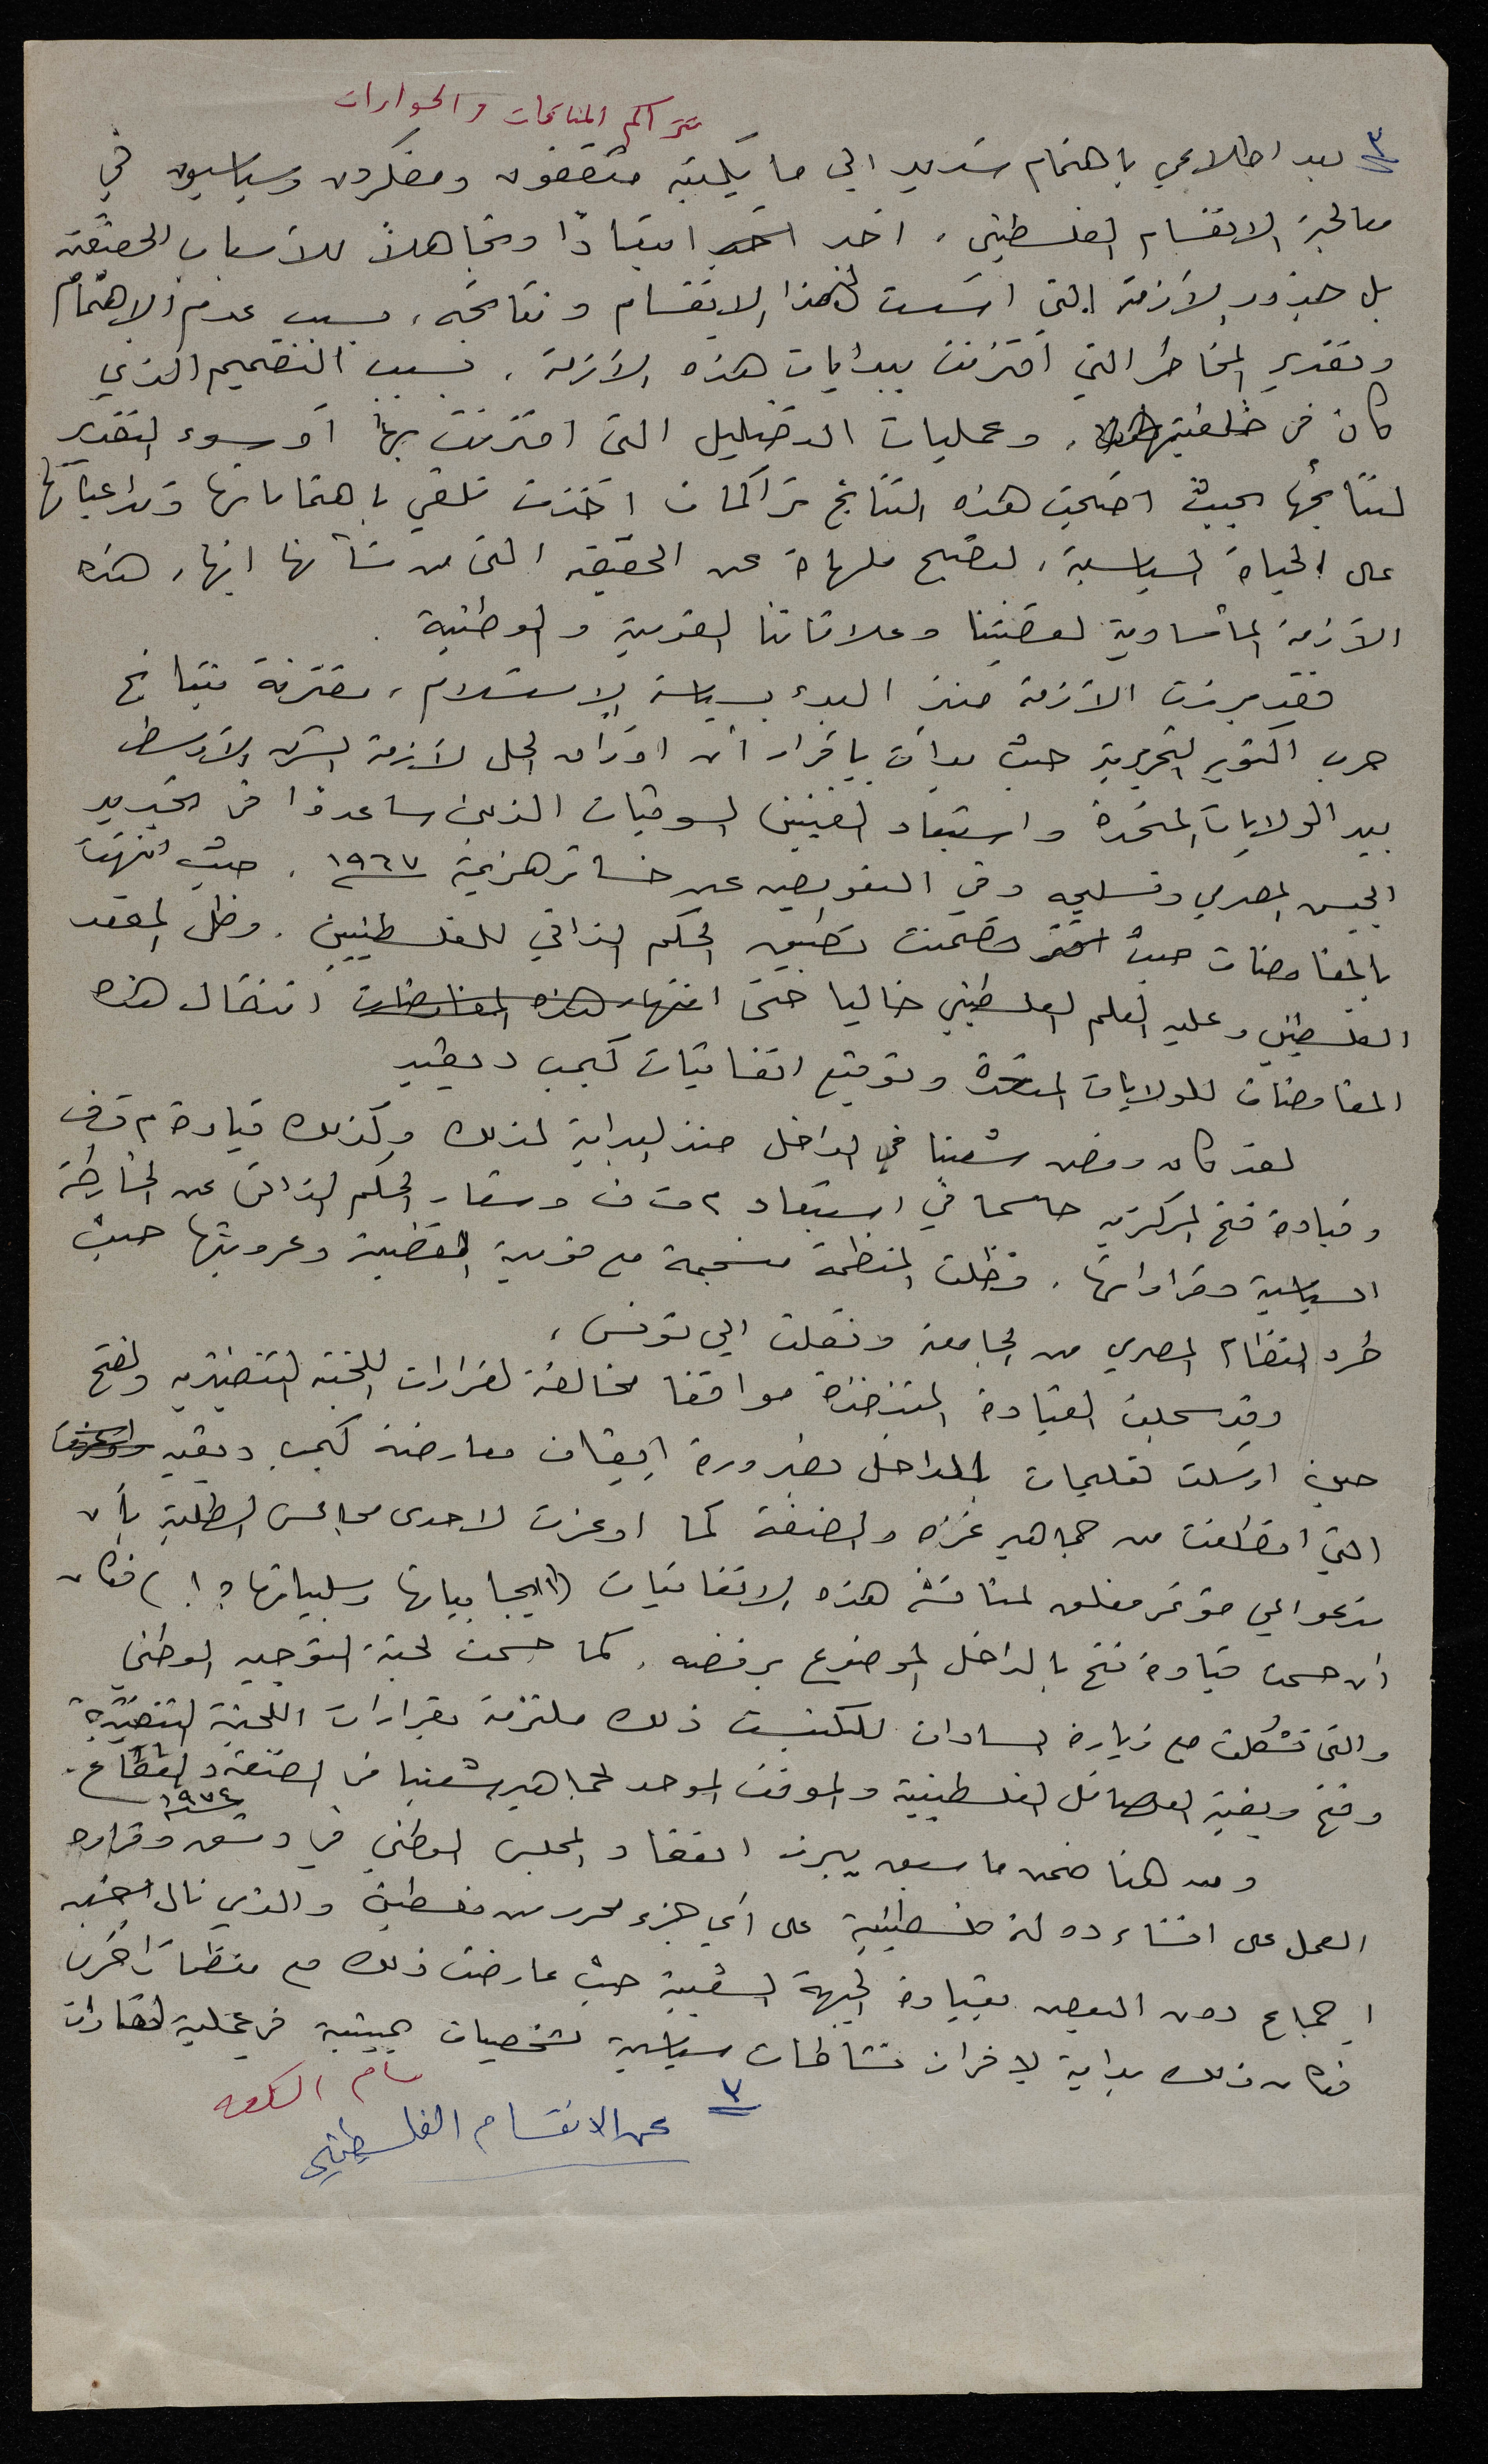 تتراكم المناقشات والحوارات
٣ بعد اطلاعي باهتمام شديد الى ما يكتبه مثقفون ومفكرون وسياسيون في
معالجة الانقسام الفلسطيني، اجد ابتعادًا وتجاهلاً للأسباب الحقيقية
بل جذور الأزمة التي اسست لهذا الانقسام ونتائجه، بسبب عدم الاهتمام
وتقدير المخاطر التي اقترنت ببدايات هذه الأزمة، بسبب التصميم الذي
كان في خلفيتها، وعمليات التضليل التي اقترنت بها أو سوء التقدير
لنتائجها بحيث اضحت هذه النتائج تراكمات اخذت تلقي باهتماماتها وتداعياتها
على الحياة السياسية، لتصبح ملهاة عن الحقيقة التي من شأنها انهاء هذه
الأزمة المأساوية لقضيتنا وعلاقاتنا القومية والوطنية.
فقد برزت الأزمة منذ البدء بسياسة الاستسلام، مقترنة بنتائج
حرب اكتوبر التحريرية حيث بدأت باقرار أن اوراق الحل لأزمة الشرق الأوسط
بيد الولايات المتحدة واستبعاد الفنيين السوفيات الذين ساعدوا في تجديد
الجيش المصري وتسليحه وفي التعويض عن خسائر هزيمة ١٩٦٧، حيث انتهت
بالمفاوضات حيث تضمنت تطبيق الحكم الذاتي للفلسطينيين. وظل المقعد
الفلسطيني وعليه العلم الفلسطيني خاليا حتى انتهاء هذه المفاوضات انتقال هذه
المفاوضات للولايات المتحدة وتوقيع اتفاقيات كمب ديفيد
لقد كان رفض شعبنا في الداخل منذ البداية لذلك وكذلك قيادة م ت ف
وقيادة فتح المركزية حاسما في استبعاد م ت ف وشعار الحكم الذاتي عن الخارطة
السياسية وقراراتها. وظلت المنظمة منسجمة مع قومية القضية وعروبتها حيث
طرد النظام المصري من الجامعة ونقلت الى تونس،
وقد سجلت القيادة المتنفذة مواقفا مخالفة لقرارات اللجنة التنفيذية ولفتح
حين ارسلت تعليمات للداخل بضرورة ايقاف معارضة كمب ديفيد
التي انطلقت من جماهير غزة والضفة كما اوعزت لاحدى مجالس الطلبة بأن
يدعو الى مؤتمر مغلق لمناقشة هذه الاتفاقيات (ايجابياتها وسلبياتها؟!) فكان
ان حسمت قيادة فتح بالداخل الموضوع برفضه، كما حسمت لجنة التوجيه الوطني
والتي تشكلت مع زيارة السادات للكنيست ذلك ملتزمة بقرارات اللجنة التنفيذية
وفتح وبقية الفصائل الفلسطينية والموقف الموحد لجماهير شعبنا في الضفة والقطاع.
١٩٧٤
ومن هنا ضمن ما سبق يبرز انعقاد المجلس الوطني في دمشق وقراره
العمل على انشاء دولة فلسطينية على أي جزء محرر من فلسطين والذي نال شبه
اجماع دون البعض بقيادة الجبهة الشعبية حيث عارضت ذلك مع منظمات اخرى
فكان ذلك بداية لافراز نشاطات سياسية لشخصيات في عملية
بسام الشكعه
٣
عن الانقسام الفلسطيني